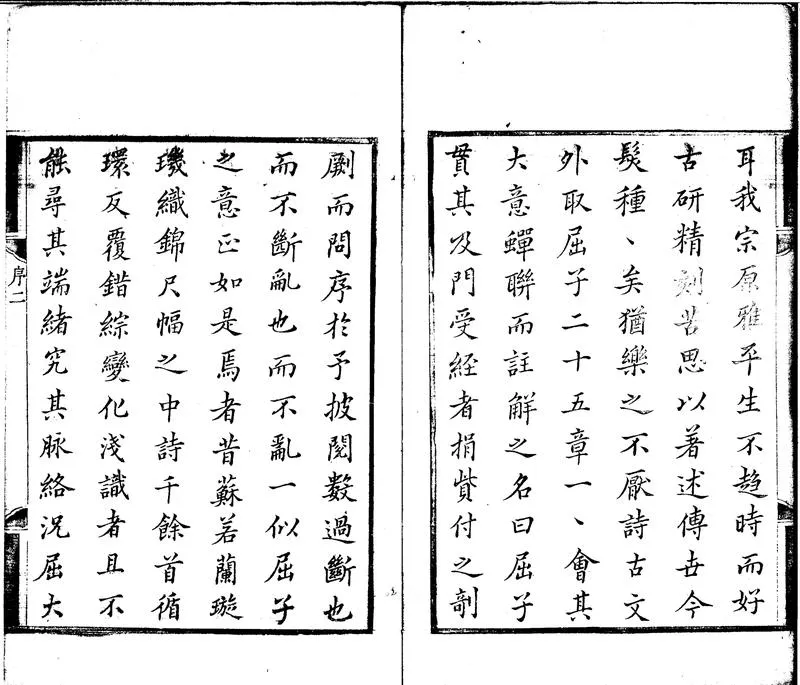 耳我宗原雅平生不趋時而好
古研精刻苦思以著述傳世今
髮種、矣猶樂之不厭詩古文
外取屈子二十五章一、會其
大意蟬聯而註解之名曰屈子
貫其及門受經者捐貲付之剞
劂而問序於予披閱數過斷也
而不斷亂也而不亂一似屈子
之意正如是焉者昔蘇若蘭璇
璣織錦尺幅之中詩千餘首循
環反覆錯綜變化淺識者且不
能尋其端緒究其脉絡況屈大
序二